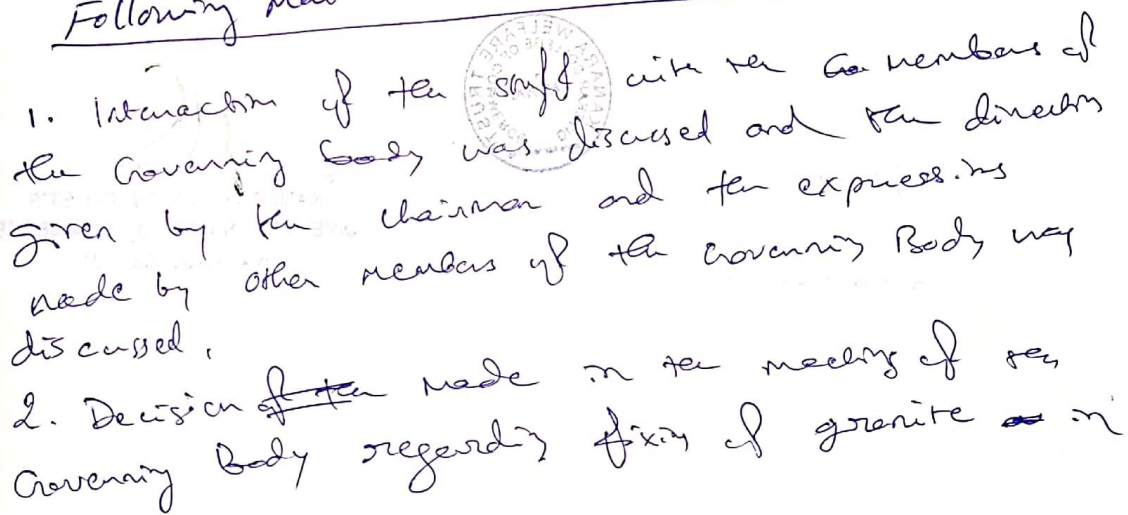 Following
1. Interaction of the staff with the Go members of
the Governing body was discussed and the directions
given by the chairman and the expressions
made by other members of the Governing Body was
discussed.
2. Decision of the made in the meeting of the
Governing Body regarding fixing of granite in